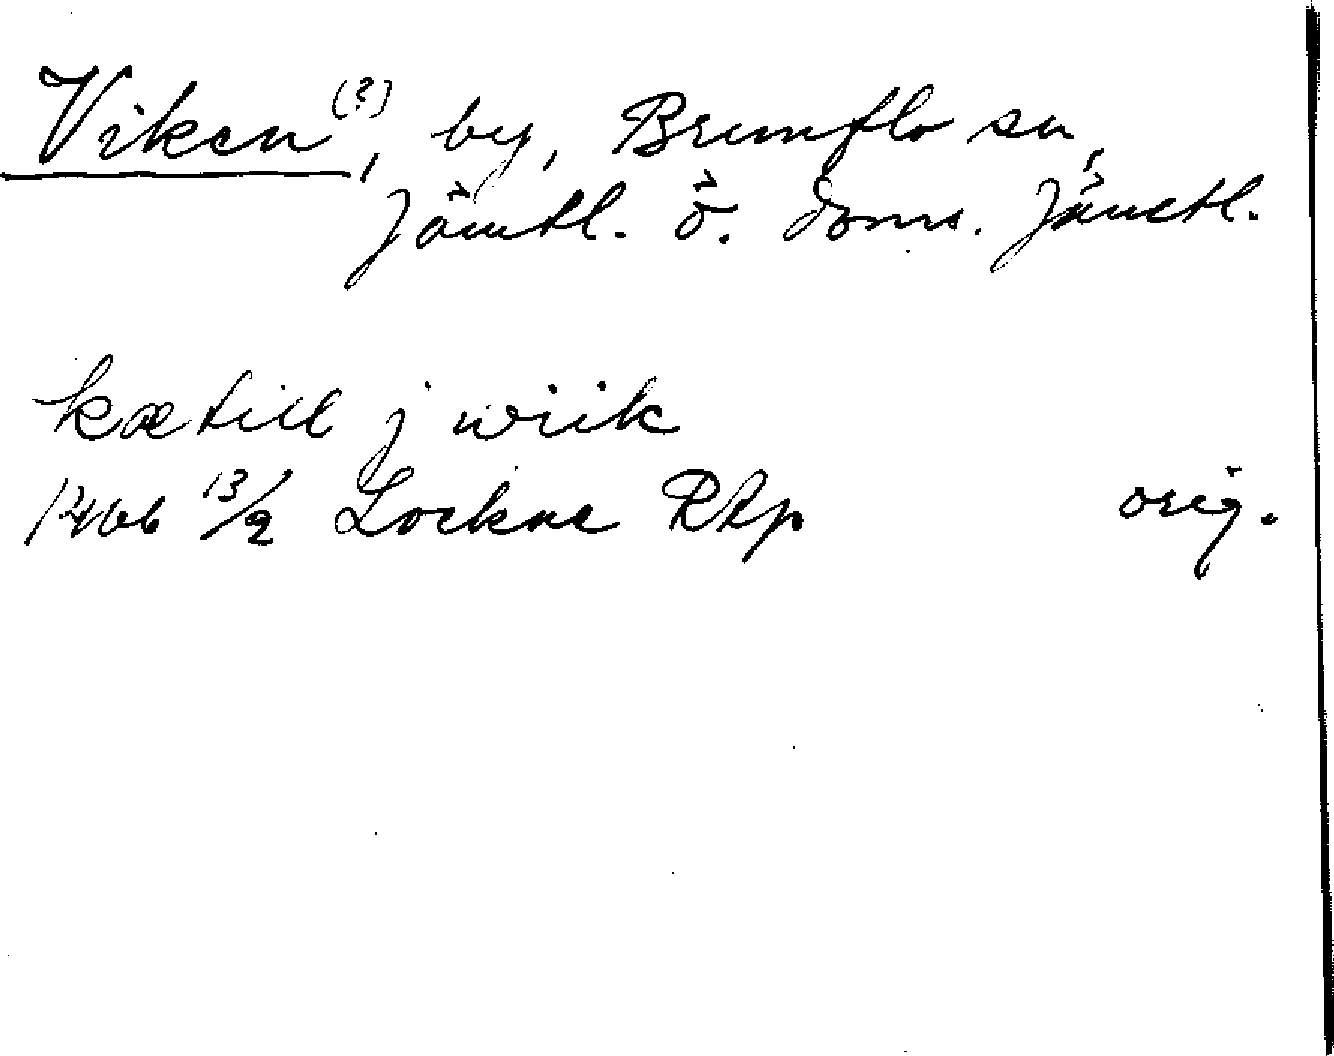 Viken (?), by, Brunflo sn,
Jämtl. ö. doms. Jämtl.
kætill j wiik
1466 13/9 Lockne RAp orig.